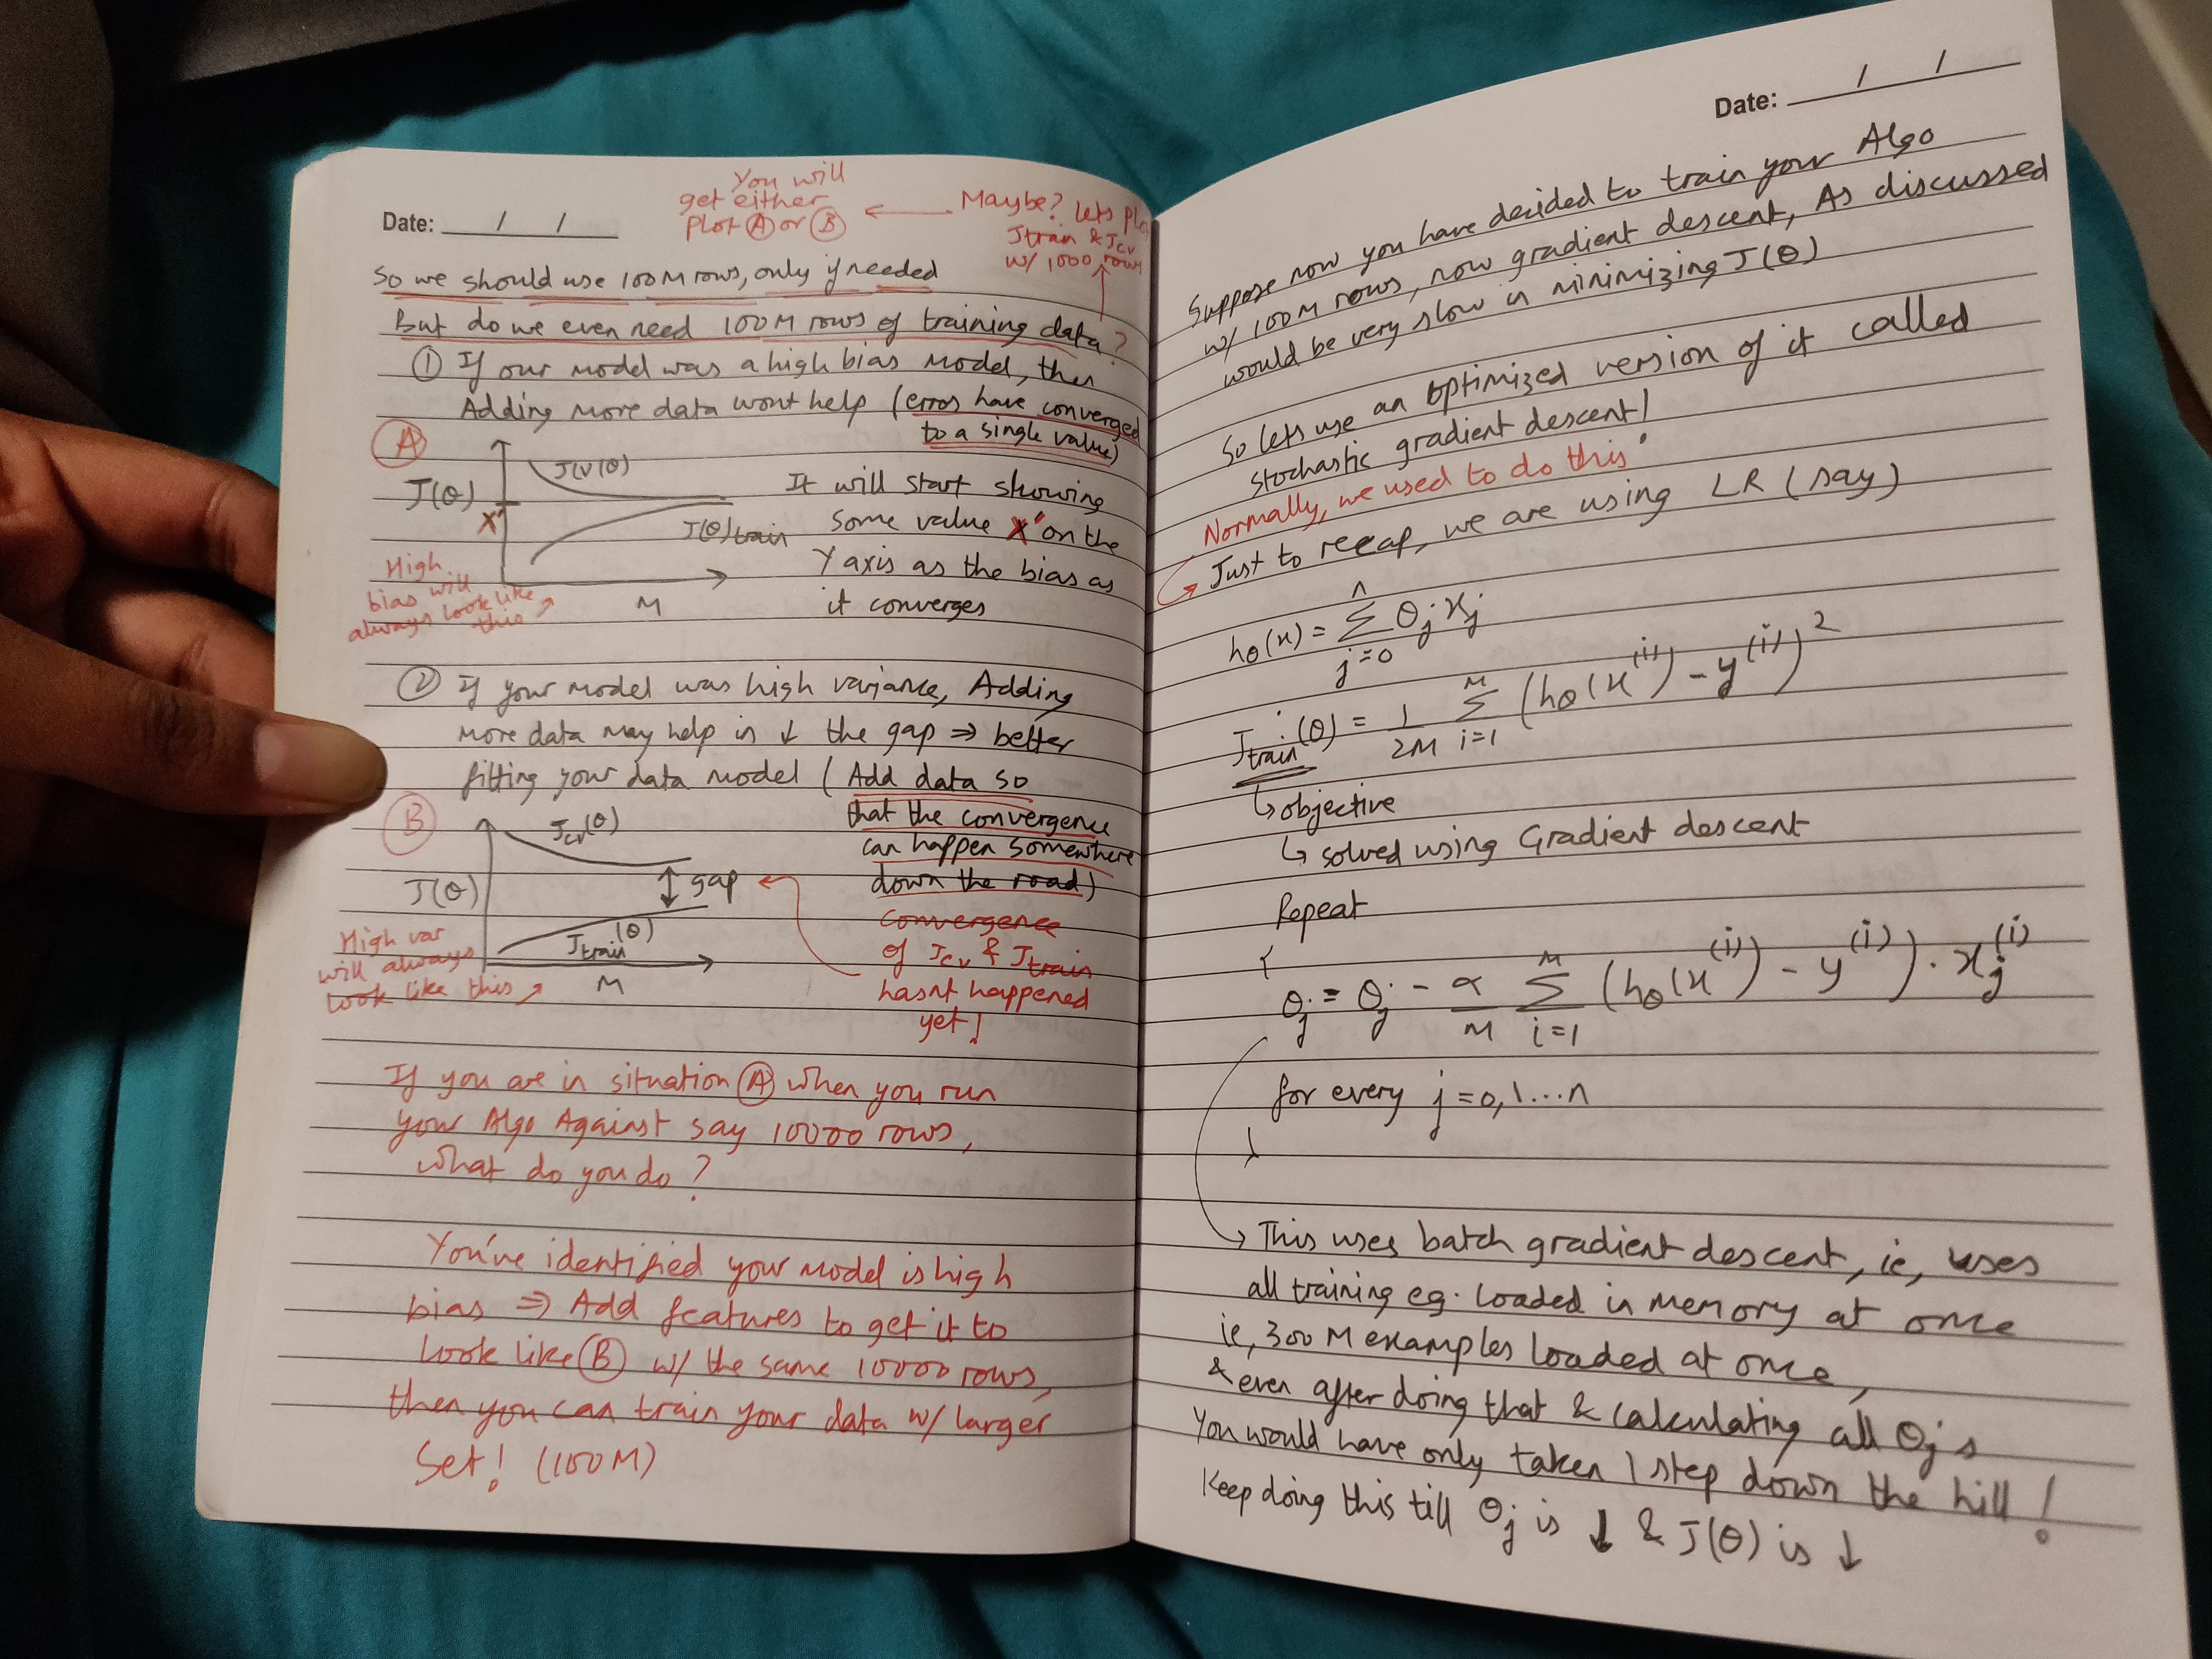 Date: / /
You will
get either
plot Ⓐ or Ⓑ
Maybe? lets plo
Jtrain & Jcv
w/ 1000 rows
So we should use 100M rows, only if needed
But do we even need 100M rows of training data?
① If our model was a high bias model, then
Adding more data wont help (errors have converged
to a single value)
Ⓐ
J(θ)
JCV(θ)
J(θ)train
X'
M
It will start showing
some value X' on the
Y axis as the bias as
it converges
High
bias will
always look like
this
② If your model was high variance, Adding
more data may help in ↓ the gap ⇒ better
fitting your data model (Add data so
that the convergence
can happen somewhere
down the road)
Ⓑ
Jcv(θ)
J(θ)
gap
Jtrain(θ)
M
convergence
of Jcv & Jtrain
hasnt happened
yet!
High var
will always
look like this
If you are in situation Ⓐ when you run
your Algo Against say 10000 rows,
what do you do?
You've identified your model is high
bias ⇒ Add features to get it to
look like Ⓑ w/ the same 10000 rows,
then you can train your data w/ larger
Set! (100M)
Date: / /
Suppose now you have decided to train your Algo
w/ 100M rows, now gradient descent, As discussed
would be very slow in minimizing J(θ)
So lets use an optimized version of it called
stochastic gradient descent!
Normally, we used to do this
Just to recap, we are using LR (say)
hθ(x) = Σ_{j=0}^{n} θj xj
Jtrain(θ) = 1/2M Σ_{i=1}^{M} (hθ(x^(i)) - y^(i))²
↳ objective
↳ solved using Gradient descent
Repeat
{
θj = θj - α/M Σ_{i=1}^{M} (hθ(x^(i)) - y^(i)) · xj^(i)
for every j=0,1...n
}
→ This uses batch gradient descent, ie, uses
all training eg. loaded in memory at once
ie, 300 M examples loaded at once,
& even after doing that & calculating all θj's
You would have only taken 1 step down the hill!
Keep doing this till θj is ↓ & J(θ) is ↓